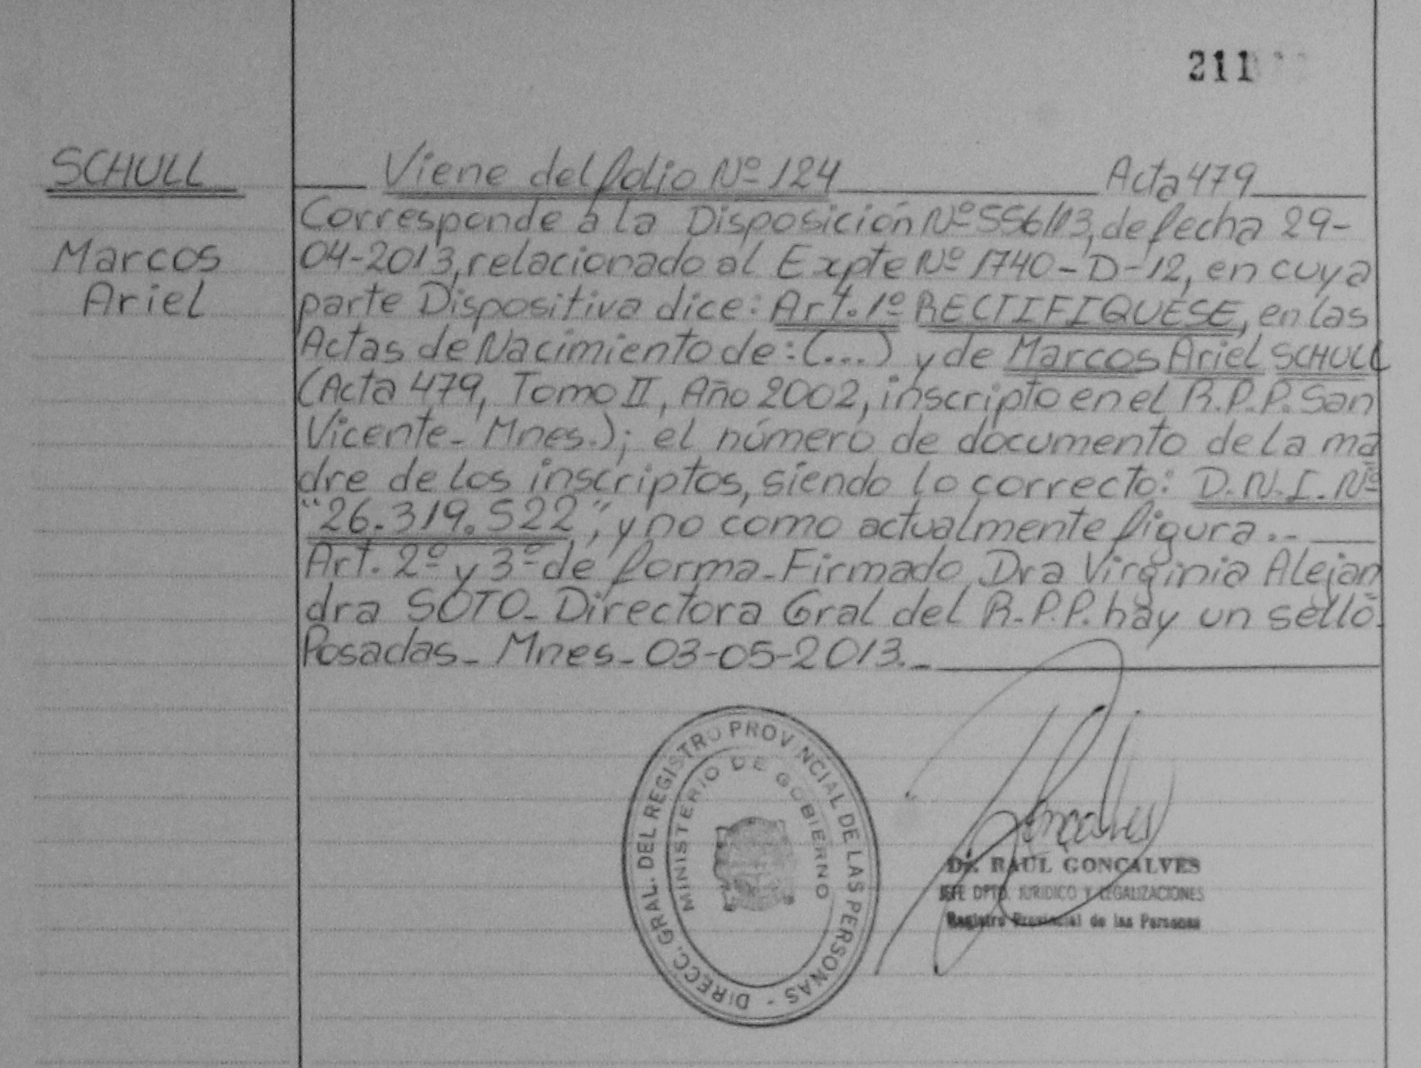 211
SCHULL
Marcos
Ariel
Viene del folio Nº 124 Acta 479
Corresponde a la Disposición Nº 556/13, de fecha 29-
04-2013, relacionado al Expte Nº 1740-D-12, en cuya
parte Dispositiva dice: Art. 1º RECTIFIQUESE, en las
Actas de Nacimiento de: (...) y de Marcos Ariel SCHULL
(Acta 479, Tomo II, Año 2002, inscripto en el R.P.P. San
Vicente - Mnes.); el número de documento de la ma
dre de los inscriptos, siendo lo correcto: D.N.I. Nº
"26.319.522", y no como actualmente figura..-
Art. 2º y 3º de forma - Firmado Dra Virginia Alejan
dra SOTO - Directora Gral del R.P.P. hay un sello.
Posadas - Mnes - 03-05-2013.-
DIRECC. GRAL. DEL REGISTRO PROVINCIAL DE LAS PERSONAS -
MINISTERIO DE GOBIERNO
Goncalves
Dr. RAUL GONCALVES
JEFE DPTO. JURIDICO Y LEGALIZACIONES
Registro Provincial de las Personas